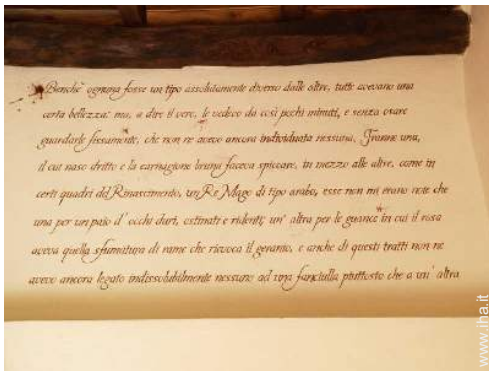 Benchè ognuna fosse un tipo assolutamente diverso dalle altre, tutte avevano una
certa bellezza: ma, a dire il vero, le vedevo da così pochi minuti, e senza osare
guardarle fissamente, che non ne avevo ancora individuata nessuna. Tranne una,
il cui naso dritto e la carnagione bruna faceva spiccare, in mezzo alle altre, come in
certi quadri del Rinascimento, un Re Mago di tipo arabo, esse non mi erano note che
una per un paio d'occhi duri, ostinati e ridenti; un'altra per le guance in cui il rosa
aveva quella sfumatura di rame che rievoca il geranio, e anche di questi tratti non ne
avevo ancora legato indissolubilmente nessuno ad una fanciulla piuttosto che a un'altra
www.iha.it